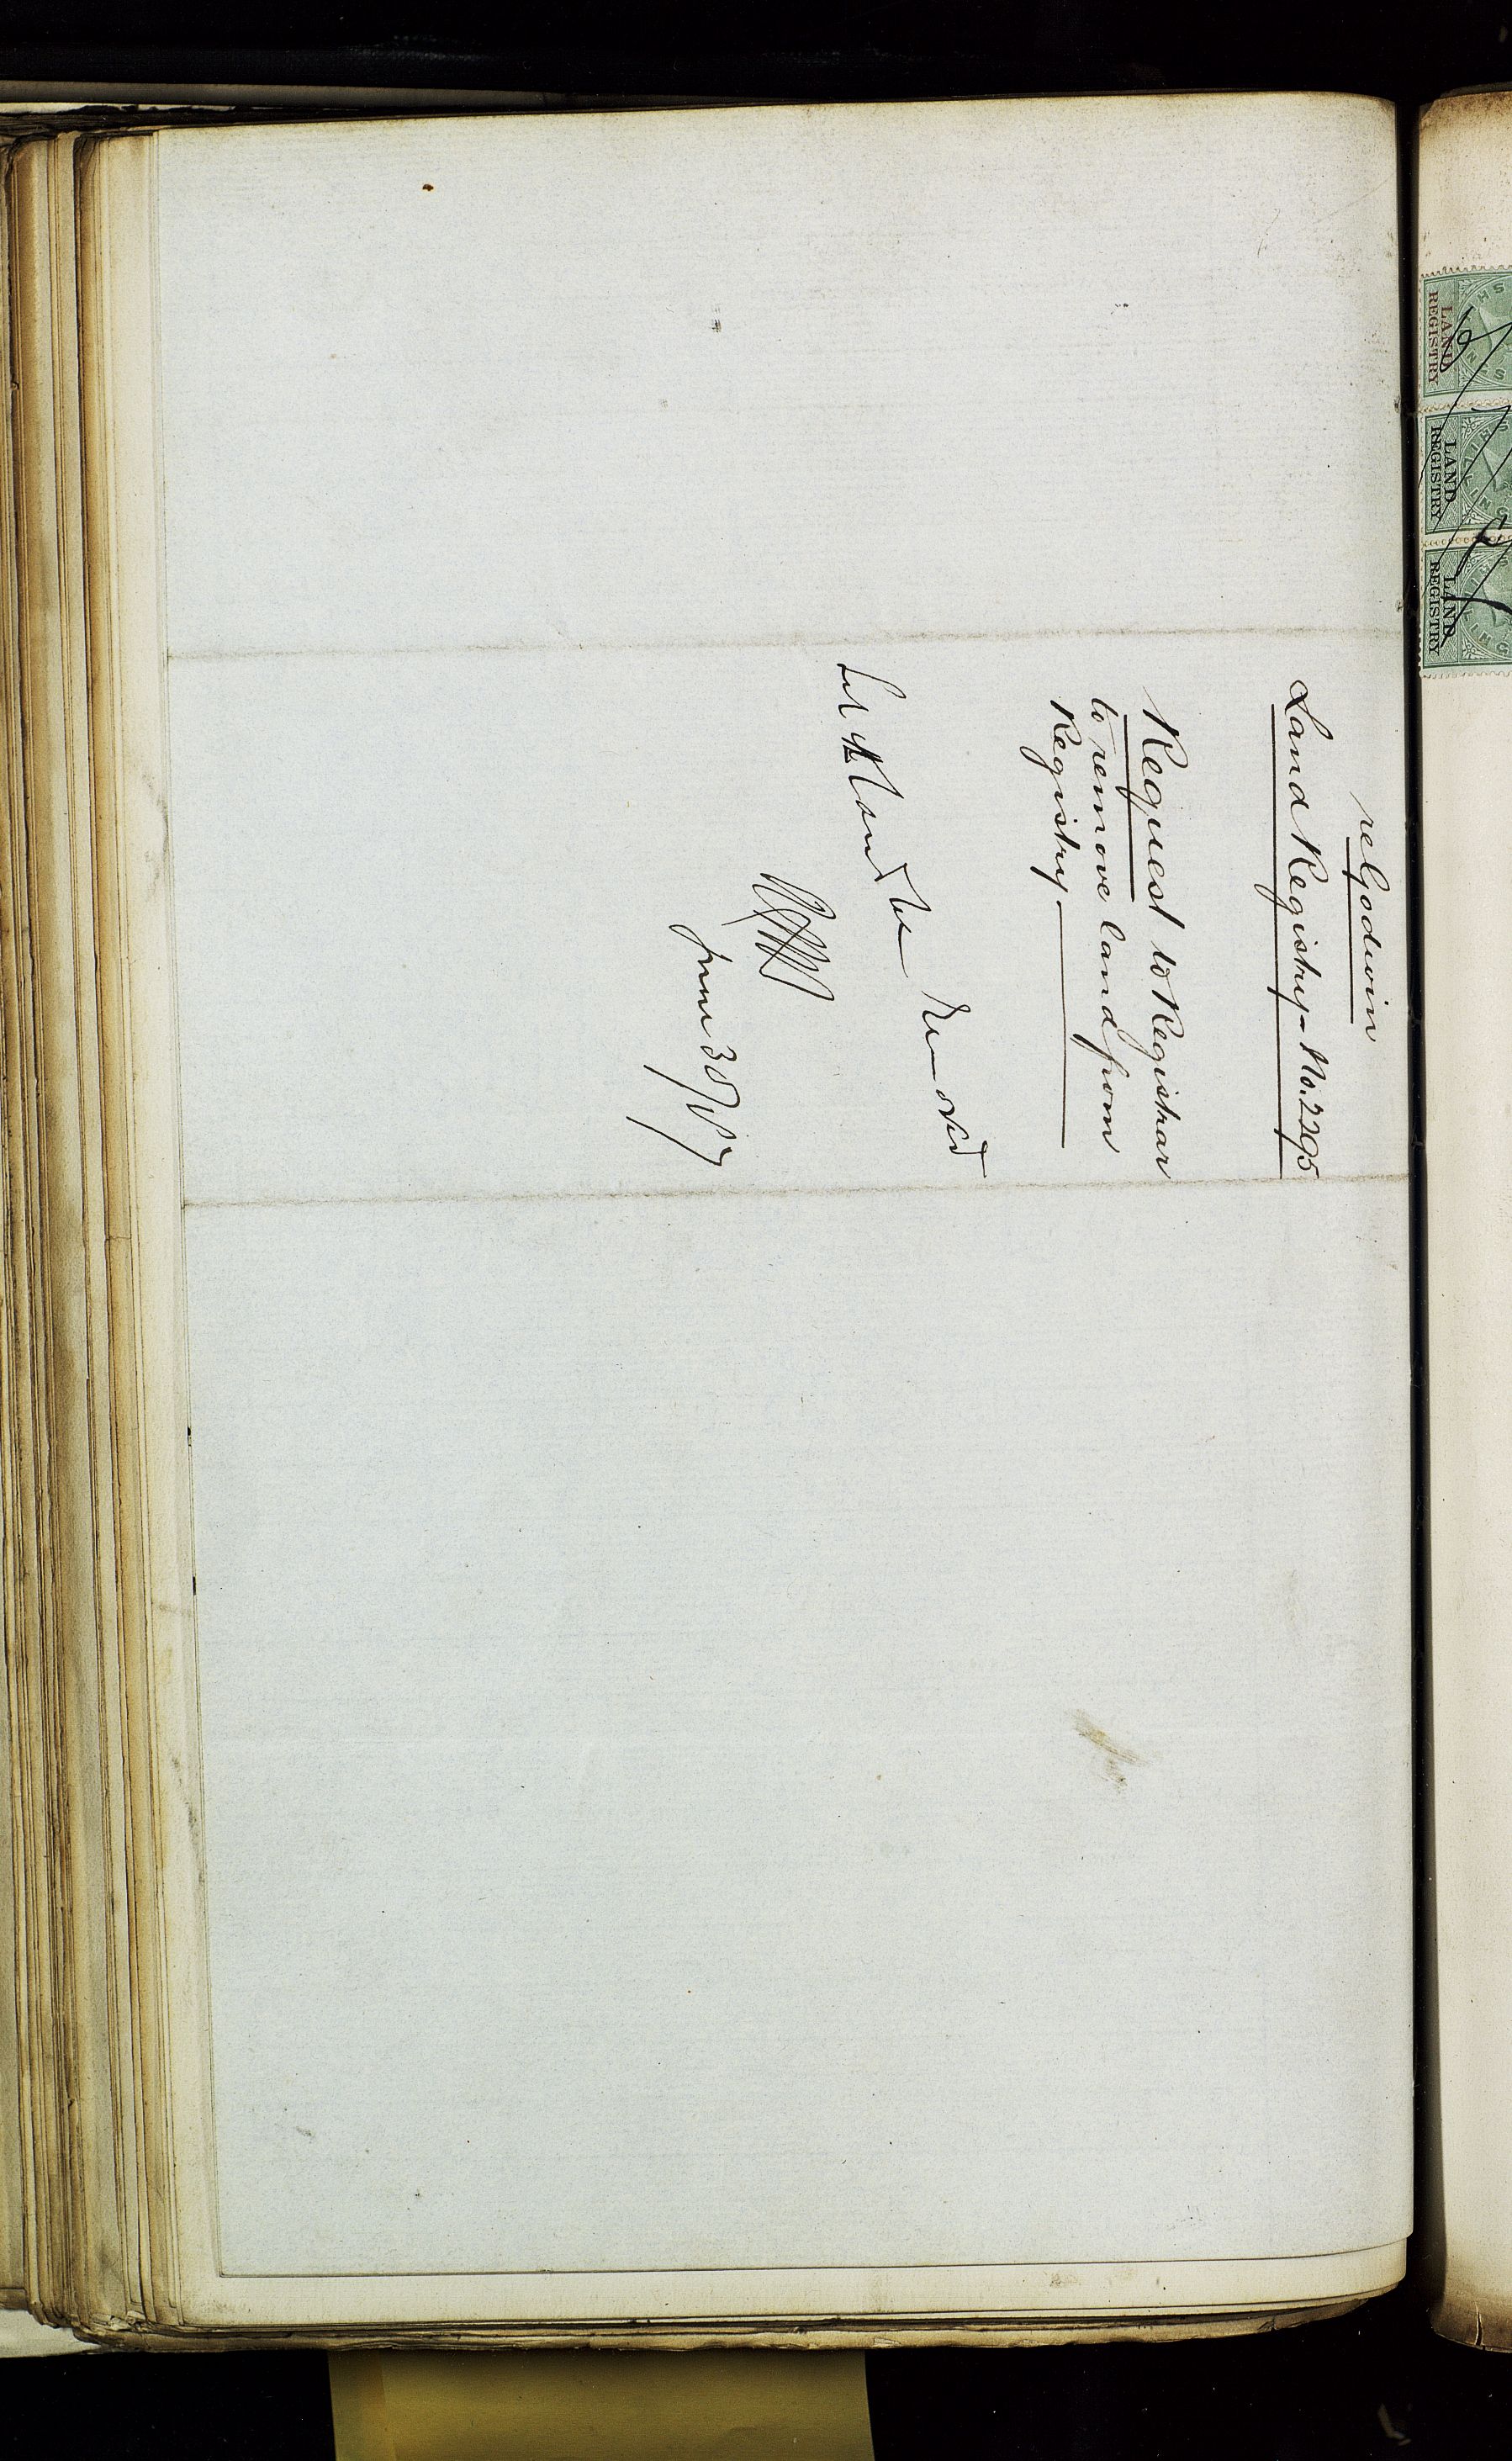 re Godwin
Land Registry - No. 2295
Request to Registrar
to remove land from
Registry
Let the land be removed
June 30
LAND
REGISTRY
LAND
REGISTRY
LAND
REGISTRY